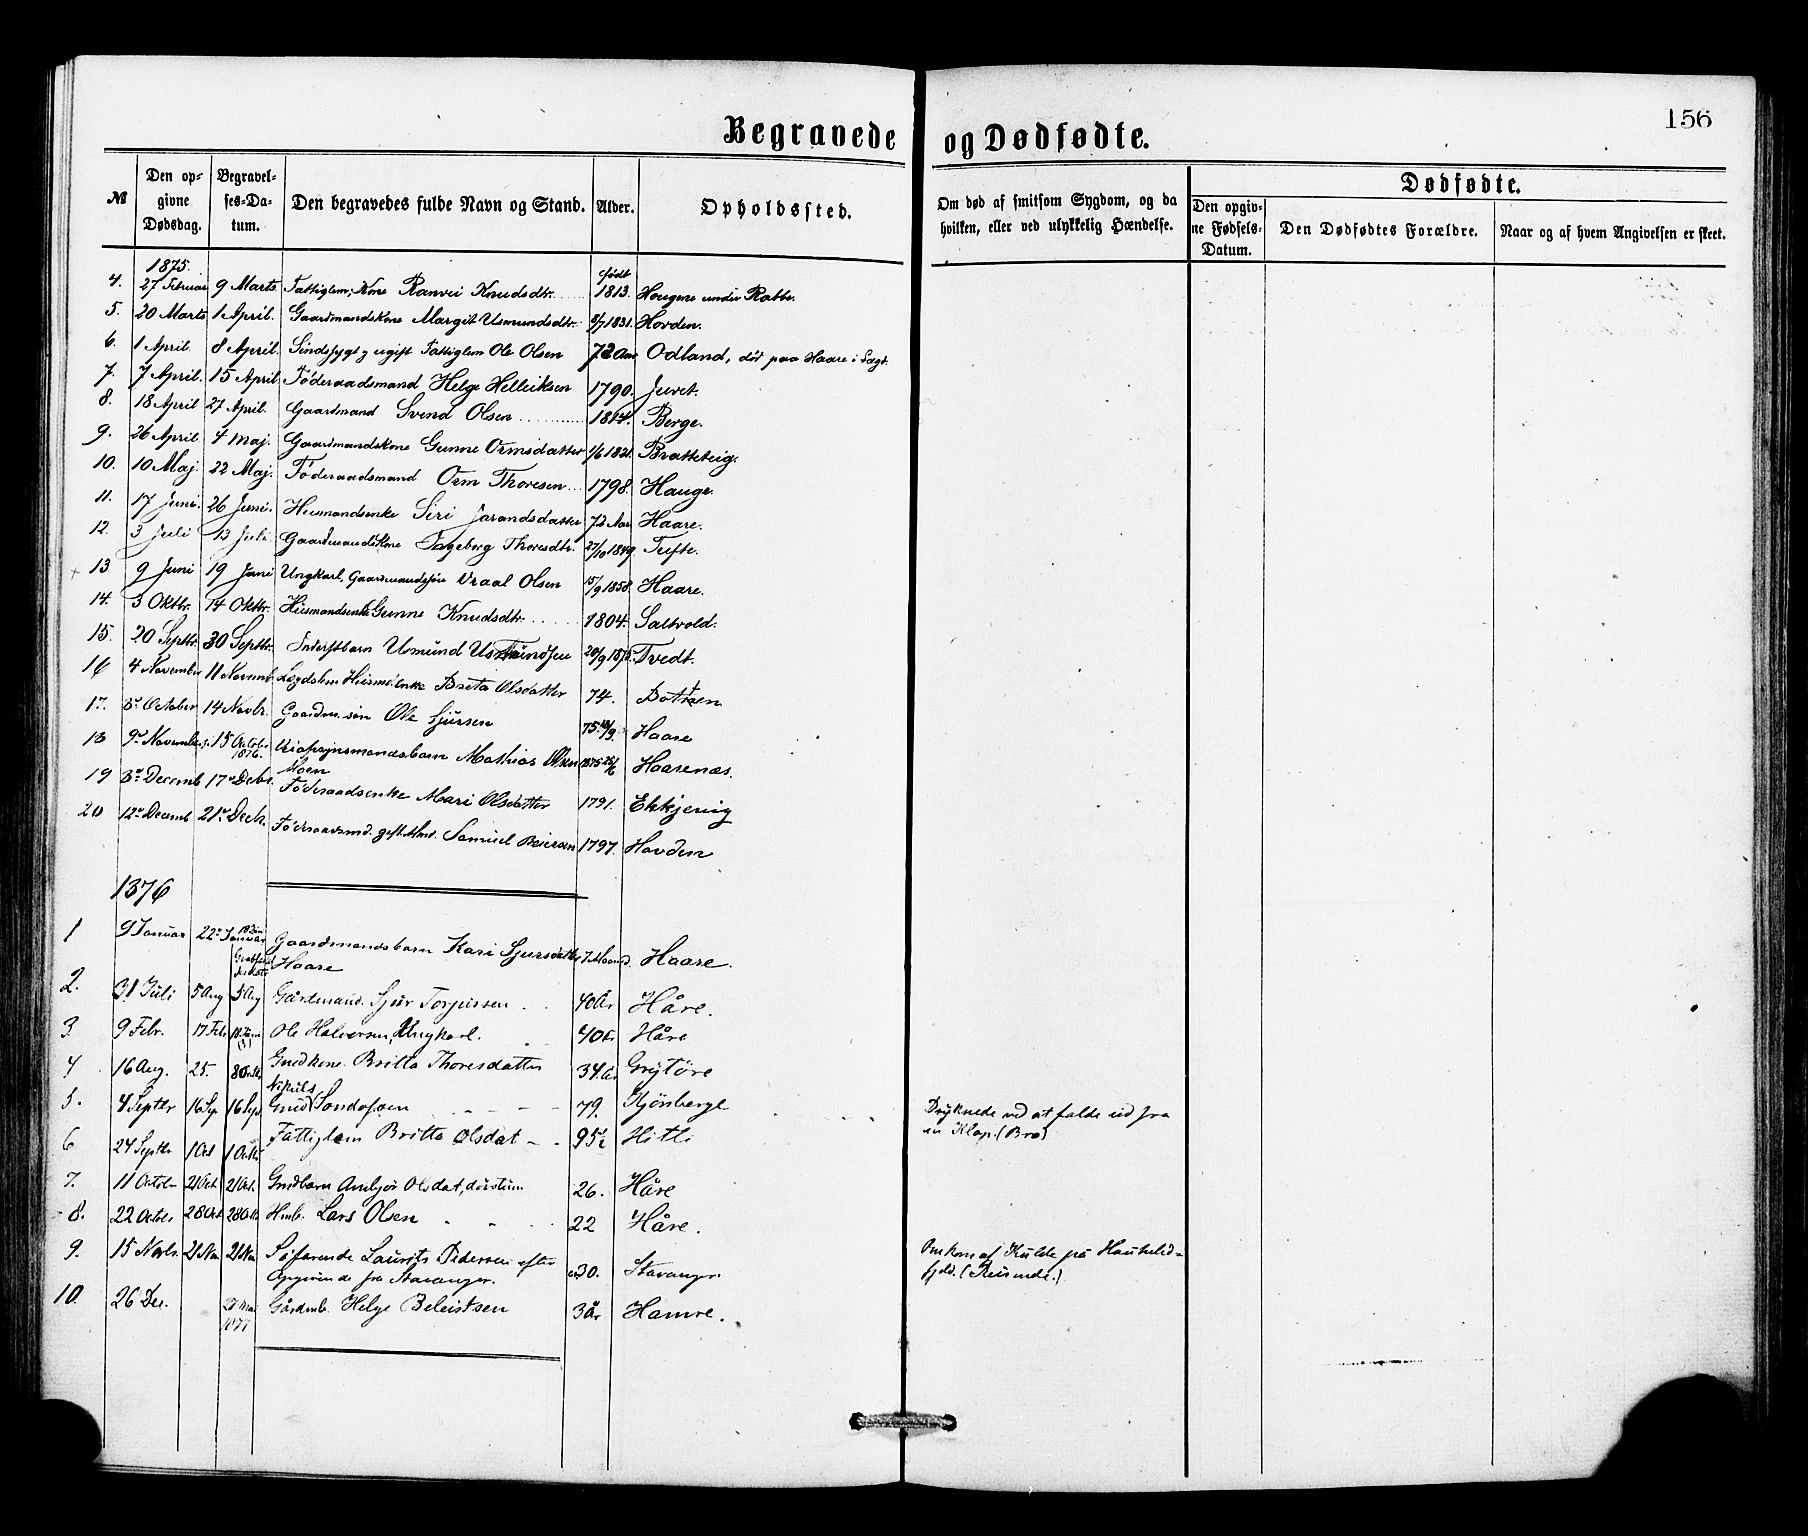 156
Begravede og Dødfødte.
№ Den opgivne Dødsdag. Begravelses-Datum. Den begravedes fulde Navn og Stand. Alder. Opholdssted. Om død af smitsom Sygdom, og da hvilken, eller ved ulykkelig Hændelse. Dødfødte. Den opgivne Fødsels-Datum. Den Dødfødtes Forældre. Naar og af hvem Angivelsen er skeet.
1875.
4. 27 Februar 9 Marts Fattiglem, Kone Ranvei Knudsdtr. født 1813. Haugene under Rabbe.
5. 20 Marts 1 April. Gaardmandskone Margit Asmundsdtr. 8/7 1831. Hovden.
6. 1 April. 8 April. Sindssygt ugift Fattiglem Ole Olsen 72 Aar Odland, død paa Haare i Lægd.
7. 7 April. 15 April Föderaadsmand Helge Helleiksen 1790. Juvet.
8. 18 April 27 April. Gaardmand Svend Olsen 1814. Berge.
9. 26 April 4 Maj. Gaardmandskone Gunne Ormsdatter 1/6 1821. Bratteteig.
10. 10 Maj. 22 Maj. Föderaadsmand Orm Thoresen 1798. Hauge.
11. 17 Juni. 26 Juni. Husmandsenke Siri Jarandsdatter 72 Aar Haare.
12. 3 Juli 13 Juli. Gaardmandskone Ingeborg Thoresdtr. 27/10 1849. Tufte.
13 9 Juni 19 Juni Ungkarl, Gaardmandssön Vraal Olsen 15/9 1858. Haare.
14. 3 Oktbr. 14 Oktbr. Husmandsenke Gunne Knudsdtr. 1804. Saltvold.
15. 20 Septbr. 30 Septbr. Inderstbarn Asmund Asmundsen 20/9 Tvedt.
16 4 November 11 Novemb. Lægdslem Husmdsenke Brita Olsdatter 74. Botnen
17. 3de October 14 Novbr. Gaardm. sön Ole Sjursen 75 Haare
18 9de November 15 October 1876. barn Mathias Olsen Moen 1875 Haarenæs.
19 8de Decemb 17de Decbr. Föderaadsenke Mari Olsdatter 1791. Ekkjeviig
20 12te Decemb 21de Decb. Föderaadsmd. gift Mand. Samuel Beiersen 1797. Hovden
1876
1 9 Januar 22de Januar Gaardmandsbarn Kari Sjursdatter Haare 7 Maand. Haare.
2. 31 Juli 5 Aug 5 Aug Gårdmand. Sjur Torjussen 40 År Håre.
3 9 Febr. 17 Feb. Ole Halvorsen, Ungkarl. 40 Håre
4 16 Aug. 25. Gmdkone Britta Thoresdatter 34. År Grytöre
5. 4 Septbr 16 Sp. 16 Sp. Gmd Nipuls Sondofsen 79. Kjönberge Druknede ved at falde ud fra en Klop. (Bro)
6 24 Septbr 1 Oct 1 Octbr Fattiglem Britta Olsdat 95 1/2 Hitli
7. 11 Octobr 21 Oct. 21 Oct. Gmdbarn Olsdat, 26. Håre
8. 22 Octob 28 Oct 28 Oct. Hmb. Lars Olsen 22 Håre.
9. 15 Novbr. 21 Nov 21 Nov. Söfarende Laurits Pedersen efter Opgivende fra Stavanger. 30. Stavanger. Omkom af Kulde på Haukelidfjeld. (Reisende.)
10. 26 Dec. 1877 Gårdmb. Helge Beleistsen 3 År Hamre.